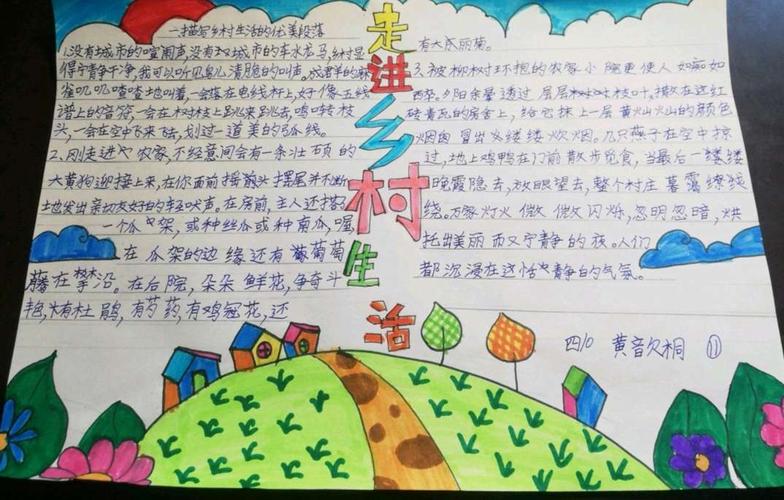 走进乡村生活
一描写乡村生活的优美段落
1.没有城市的喧闹声,没有城市的车水马龙,乡村显
得宁静干净,我可以听见鸟儿清脆的叫声,成群的麻
雀叽叽喳喳地叫着,一会落在电线杆上,好像五线
谱上的音符,一会在树枝上跳来跳去,鸣啭枝
头,一会在空中飞来飞去,划过一道美的弧线。
2、刚走进农家,不经意间会有一条壮硕的
大黄狗迎接上来,在你面前摇头摆尾并不断
地发出亲切友好的轻吠声。在房前,主人还搭
一个瓜架,或种丝瓜或种南瓜,喔
在瓜架的边缘还有葡萄
藤在攀沿。在后院,朵朵鲜花,争奇斗
艳,有杜鹃,有芍药,有鸡冠花,还
有大丽菊。
3、被柳树环抱的农家小院更使人如痴如
醉。夕阳余晖透过层层树枝叶,撒在这红
砖青瓦的房舍上,给它抹上一层黄灿灿的颜色
烟囱冒出缕缕炊烟。几只燕子在空中掠
过,地上鸡鸭在门前散步觅食,当最后一缕缕
晚霞隐去,放眼望去,整个村庄暮霭缭绕
绕。万家灯火微微闪烁,忽明忽暗,烘
托出美丽而又宁静的夜。人们
都沉浸在这恬静的气氛。
四10 黄音欠桐 11